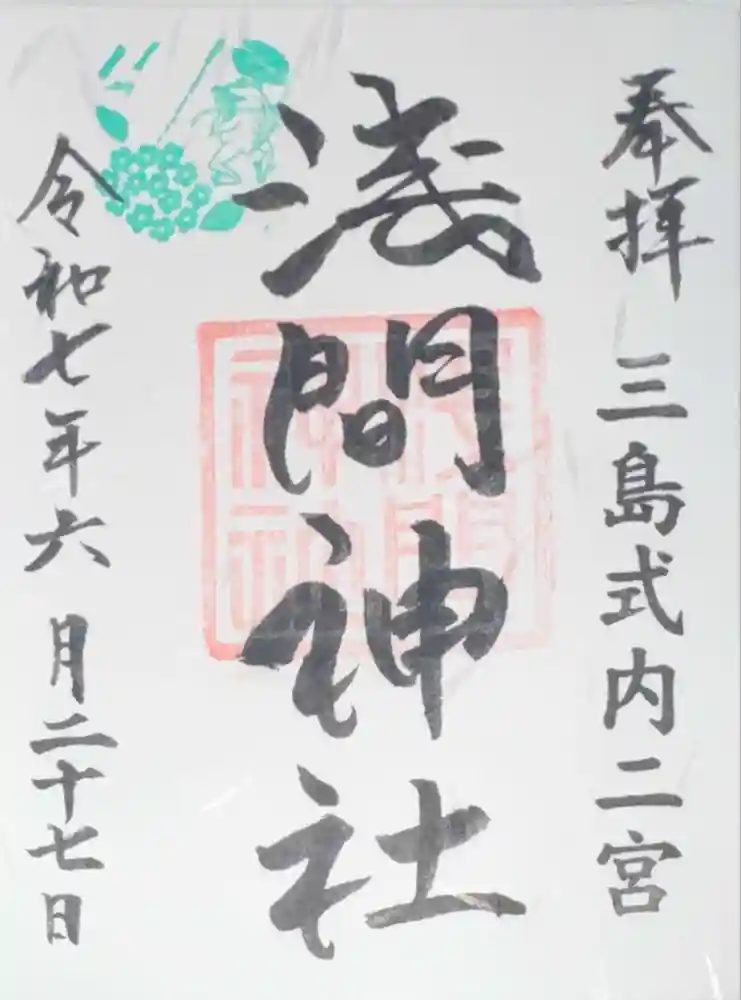 奉拝 三島式内二宮
淺間神社
令和七年六月二十七日